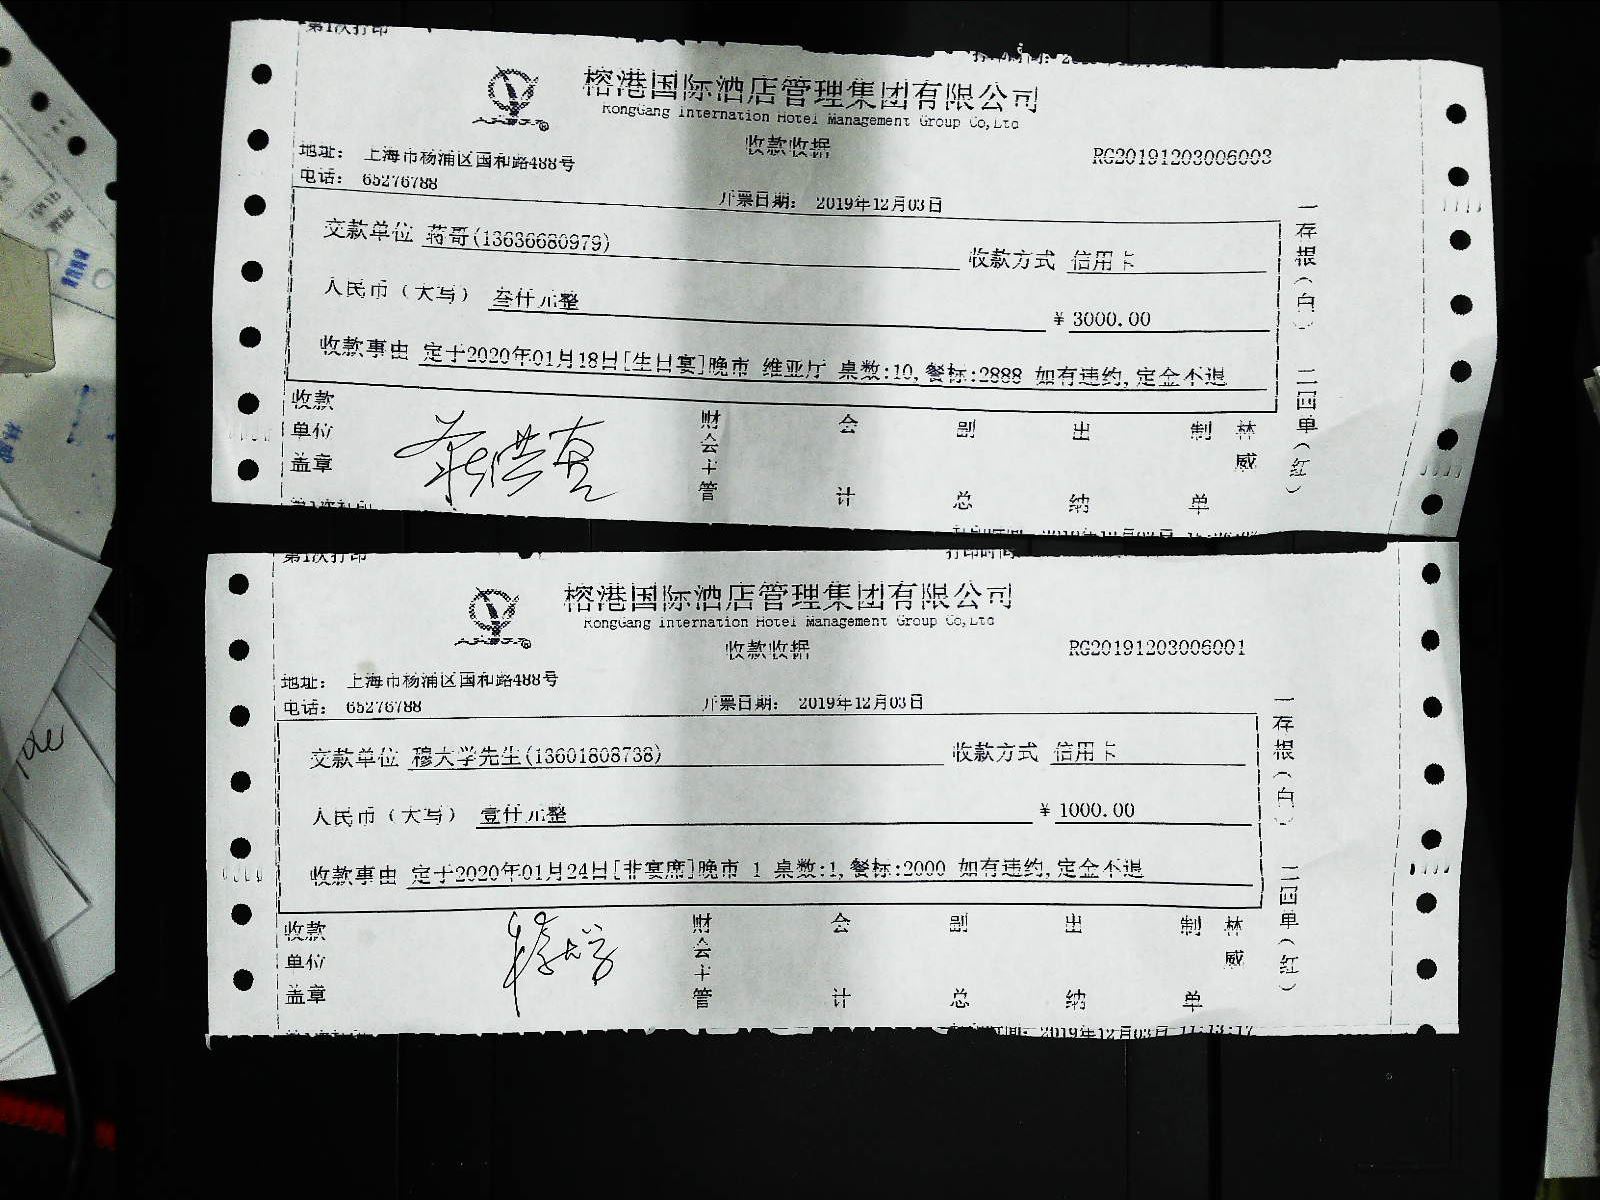 第1次打印
榕港国际酒店管理集团有限公司
RongGang International Hotel Management Group Co,Ltd
收款收据
RG20191203006003
地址： 上海市杨浦区国和路488号
电话： 65276788
开票日期： 2019年12月03日
交款单位 蒋哥(13636680979)
收款方式 信用卡
人民币（大写） 叁仟元整
¥ 3000.00
收款事由 定于2020年01月18日[生日宴]晚市 维亚厅 桌数:10,餐标:2888 如有违约,定金不退
一存根（白） 二回单（红）
收款单位盖章
财会主管
会计
副总
出纳
制单
林威
第1次打印
打印时间
榕港国际酒店管理集团有限公司
RongGang International Hotel Management Group Co,Ltd
收款收据
RG20191203006001
地址： 上海市杨浦区国和路488号
电话： 65276788
开票日期： 2019年12月03日
交款单位 穆大学先生(13601808738)
收款方式 信用卡
人民币（大写） 壹仟元整
¥ 1000.00
收款事由 定于2020年01月24日[非宴席]晚市 1 桌数:1,餐标:2000 如有违约,定金不退
一存根（白） 二回单（红）
收款单位盖章
穆大学
财会主管
会计
副总
出纳
制单
林威
2019年12月03日 11:13:17